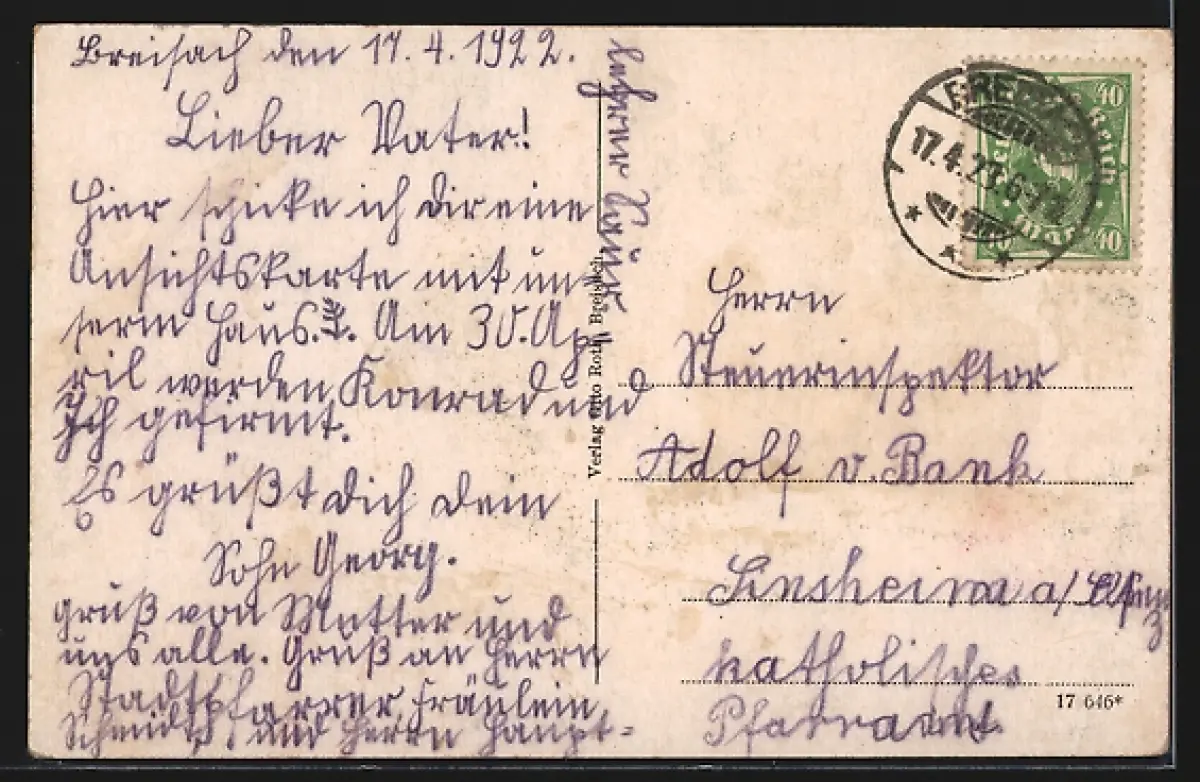 Breisach den 17.4.1922.
Lieber Vater!
Hier schicke ich dir eine
Ansichtskarte mit un-
serm Haus. Am 30. Ap
ril werden Konrad und
Ich gefirmt.
Es grüßt dich dein
Sohn Georg.
gruß von Mutter und
uns alle. Gruß an Herrn
Stadtpfarrer Fräulein
Schmidt, und Herrn Haupt-
lehrer Sauer
Verlag Otto Roth, Breisach
17.4.23.6-
40
40
Herrn
Steuerinspektor
Adolf v. Bank
Sinsheim a/ Elsenz
katholisches
Pfarramt.
17 646*